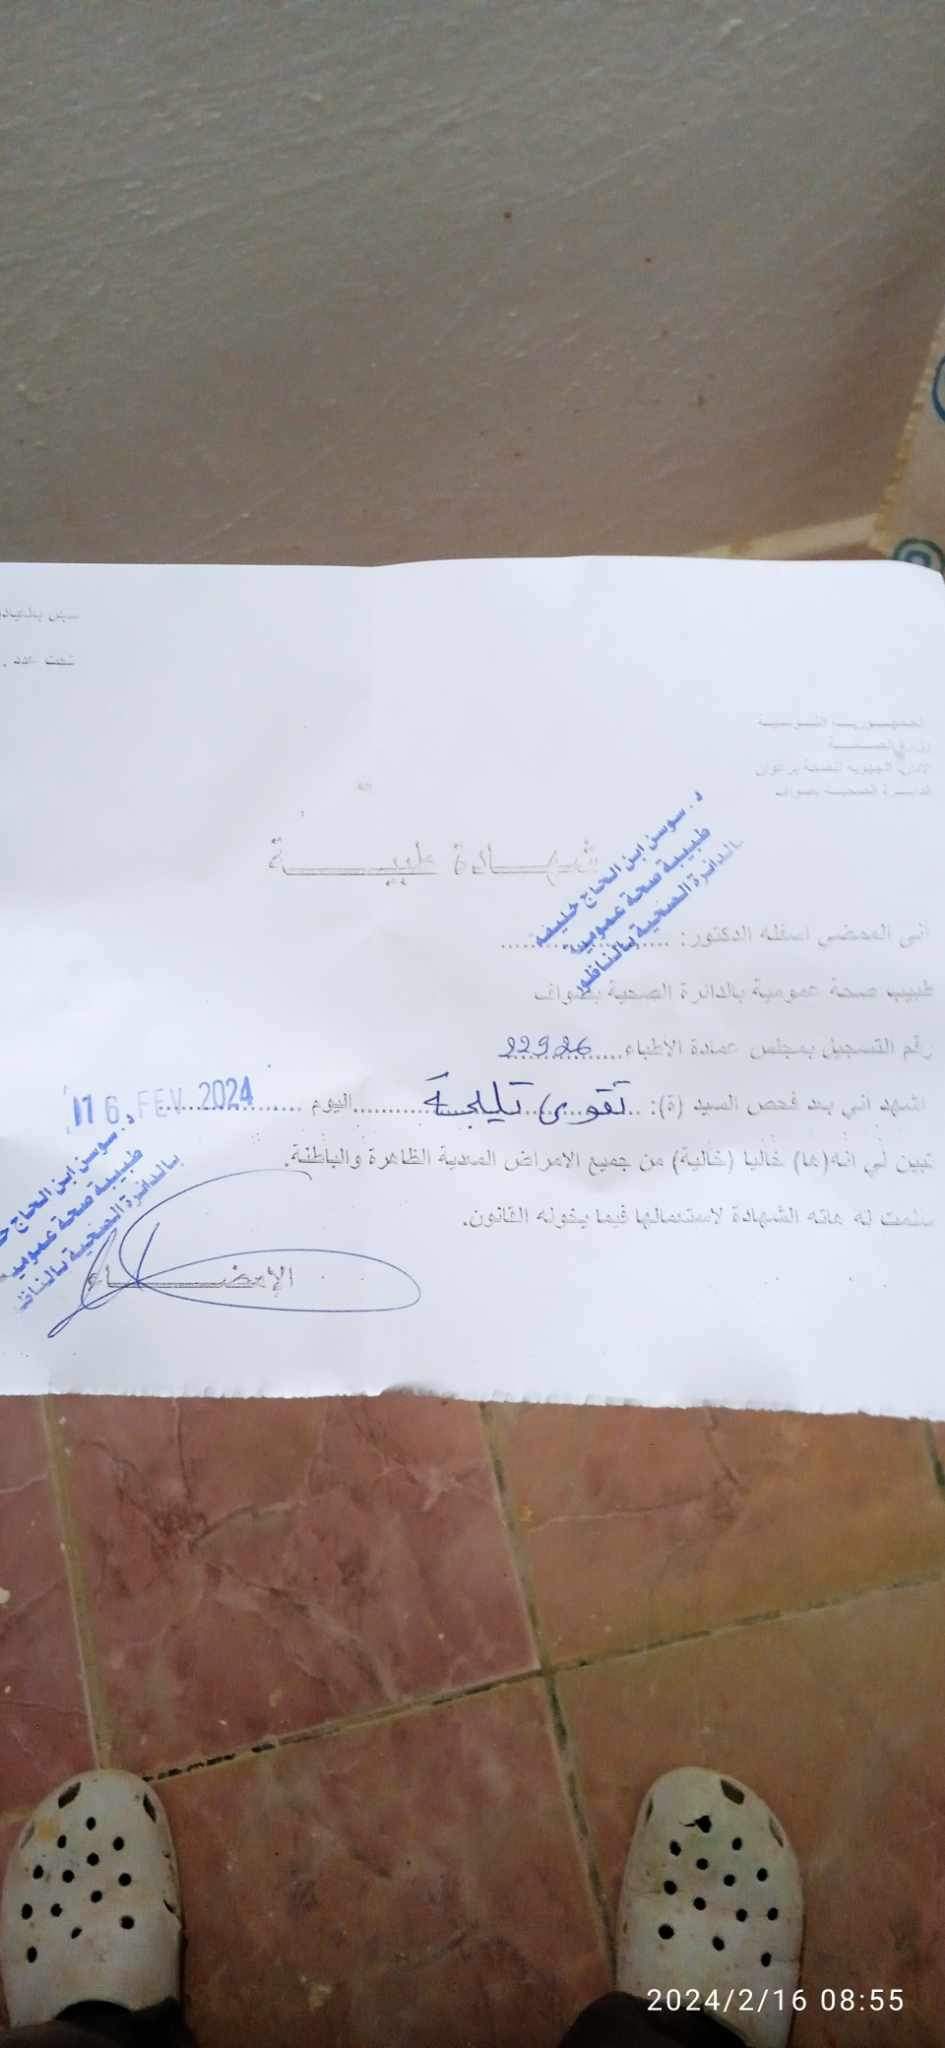 تحت عدد .
الجمهورية التونسية
وزارة الصحة
الإدارة الجهوية للصحة بزغوان
الدائرة الصحية بصواف
شهادة طبية
د. سوسن ابن الحاج خليفة
طبيبة صحة عمومية
بالدائرة الصحية بالناظور
أني الممضي أسفله الدكتور: ......................
طبيب صحة عمومية بالدائرة الصحية بصواف
رقم التسجيل بمجلس عمادة الأطباء......22926
أشهد اني بعد فحص السيد (ة): .. تقوى ..........اليوم ..................
16 FEV. 2024
تبين لي أنه(ها) خاليا (خالية) من جميع الامراض المعدية الظاهرة والباطنة.
سلمت له هاته الشهادة لاستعمالها فيما يخوله القانون.
د. سوسن ابن الحاج
طبيبة صحة عمومية
بالدائرة الصحية
الإمضاء
2024/2/16 08:55